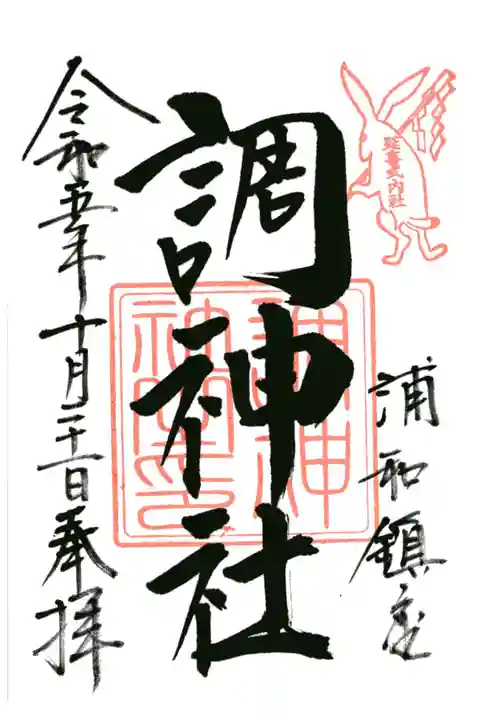 延喜式内社
浦和鎮座
調神社
令和五年十月二十一日奉拝